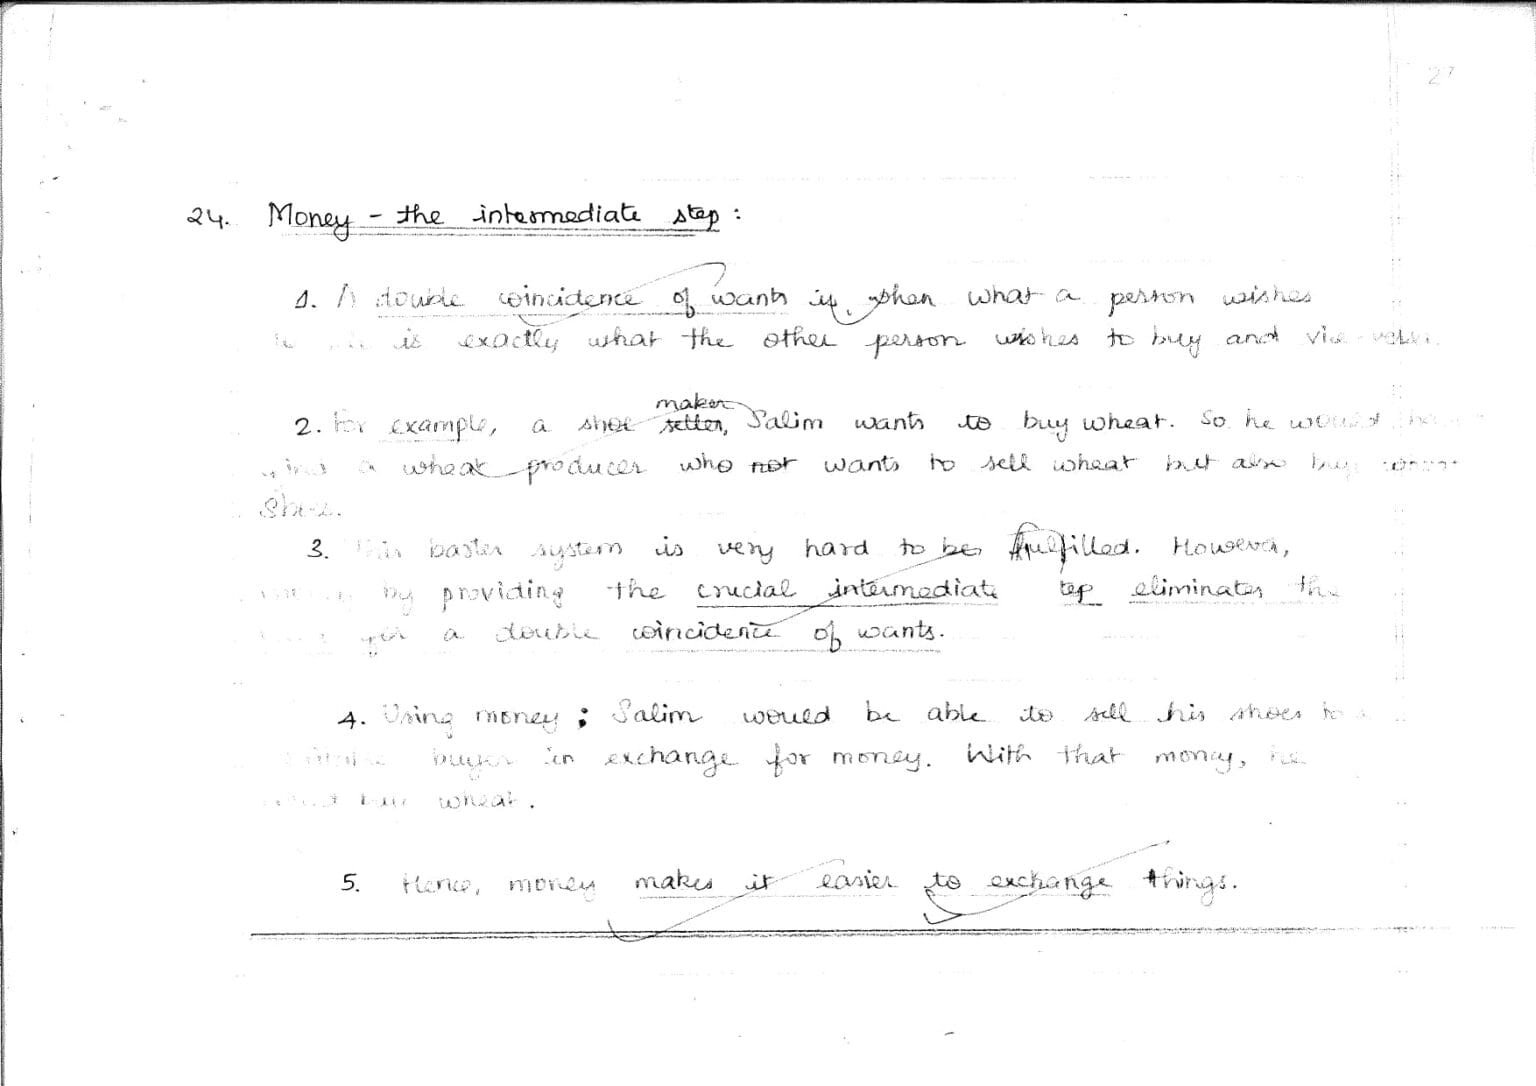 27
24. Money - the intermediate step :
1. A double coincidence of wants is when what a person wishes
is exactly what the other person wishes to buy and vice-versa.
maker
2. For example, a shoe setter, Salim wants to buy wheat. So he would
a wheat producer who not wants to sell wheat but also buy
Shoes.
3. This barter system is very hard to be fulfilled. However,
by providing the crucial intermediate tep eliminates the
for a double coincidence of wants.
4. Using money ; Salim would be able to sell his shoes to
buyer in exchange for money. With that money, he
buy wheat.
5. Hence, money makes it easier to exchange things.